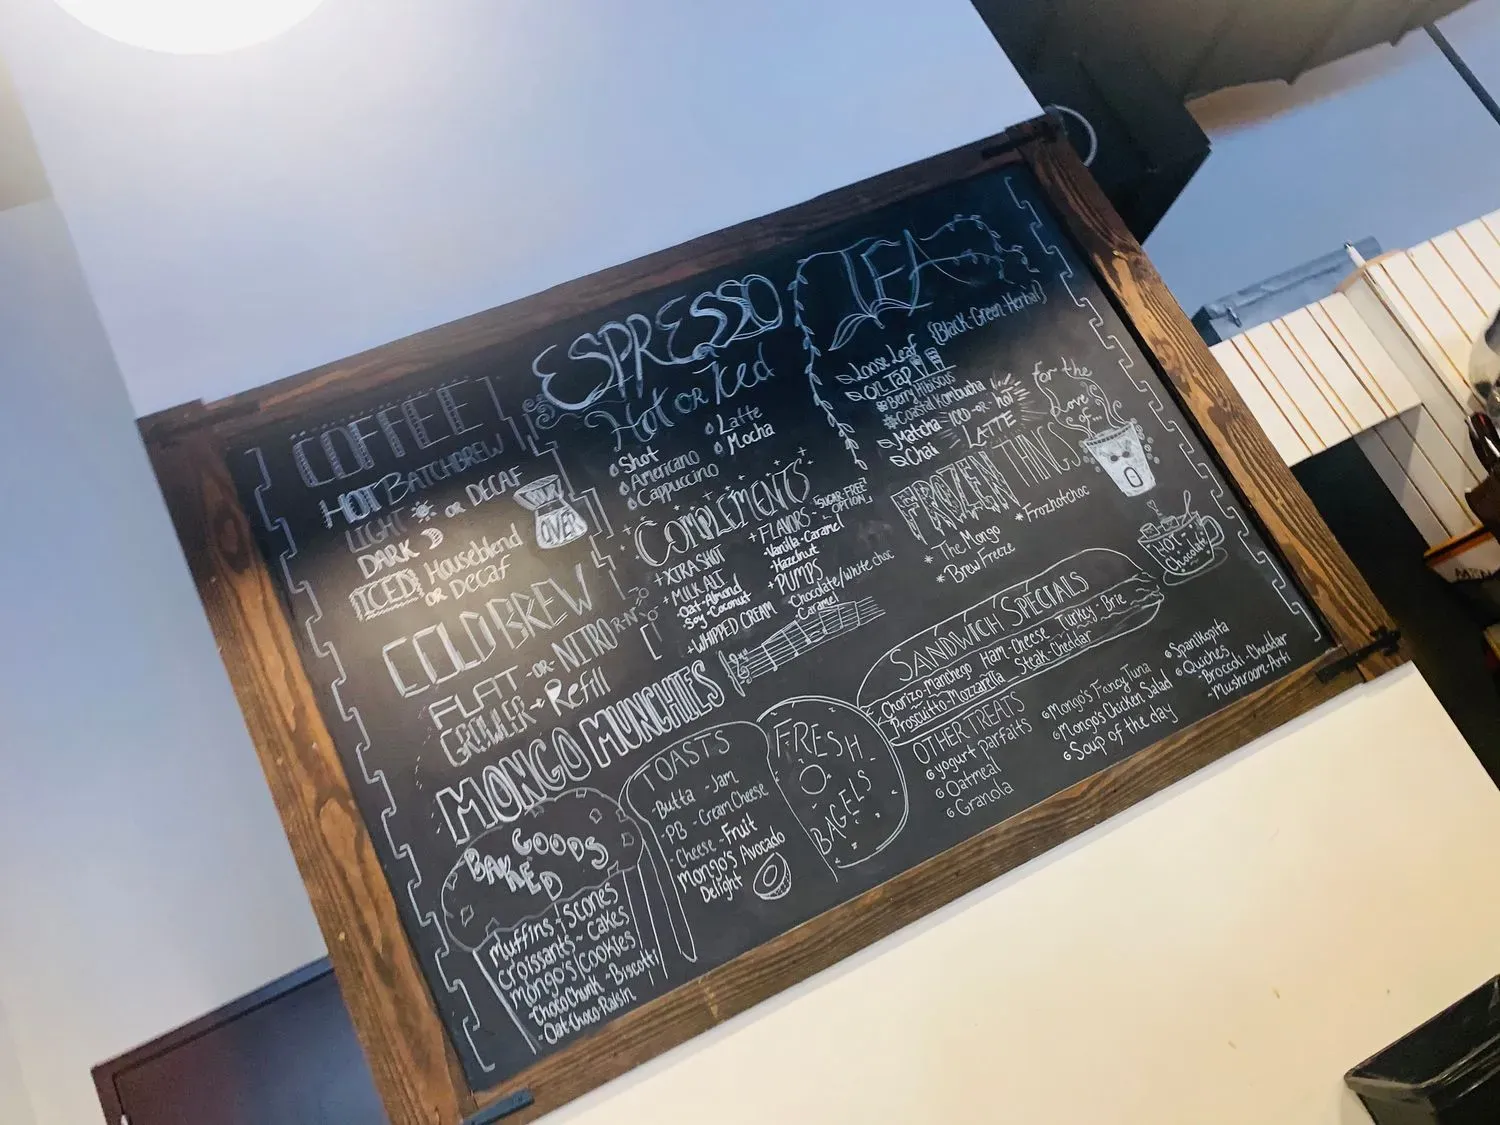 COFFEE
HOT BATCHBREW
LIGHT OR DECAF
DARK
ICED Houseblend
OR Decaf
OVER
COLD BREW
FLATT -OR- NITRO
GROLLER → Refill
ESPRESSO
Hot OR Iced
Shot
Americano
Cappuccino
Latte
Mocha
COMPLEMENTS
+XTRA SHOT
+MILK ALT
Oat-Almond
Soy-Coconut
+WHIPPED CREAM
+FLAVORS - [SUGAR-FREE OPTION]
-Vanilla -Caramel
-Hazelnut
+PUMPS
-Chocolate/white choc
-Caramel
TEA
{Black-Green-Herbal}
Loose Leaf
ON TAP
Berry Hibiscus
Coastal Kombucha
Matcha ICED-OR-hot
Chai LATTE
For the
Love
of...
FROZEN THINGS
*The Mongo
*BrewFreeze
*Frozhotchoc
HOT
Chocolate
MONGO MUNCHIES
BAKED GOODS
Muffins~Scones
Croissants~Cakes
Mongo's Cookies
-ChocoChunk -Biscotti
-Oat-Choco-Raisin
TOASTS
-Butta -Jam
-PB -Cream Cheese
-Cheese -Fruit
Mongo's Avocado
Delight
FRESH
BAGELS
SANDWICH SPECIALS
Chorizo-Manchego Ham-Cheese Turkey-Brie
Prosciutto-Mozzarella Steak-Cheddar
OTHER TREATS
yogurt parfaits
Oatmeal
Granola
Mongo's Fancy Tuna
Mongo's Chicken Salad
Soup of the day
Spanikopita
Quiches
-Broccoli-Cheddar
-Mushroom-Arti